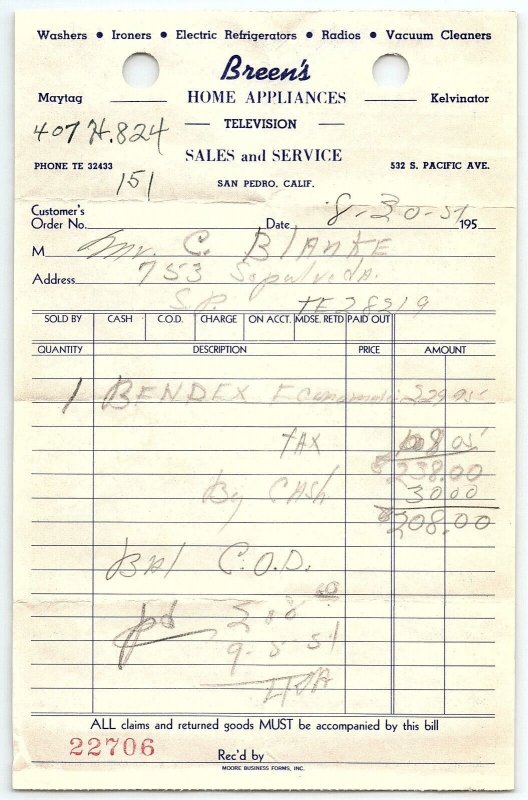 Washers • Ironers • Electric Refrigerators • Radios • Vacuum Cleaners
Breen's
Maytag HOME APPLIANCES Kelvinator
407 H.824 TELEVISION
SALES and SERVICE
PHONE TE 32433 532 S. PACIFIC AVE.
151 SAN PEDRO, CALIF.
Customer's
Order No. Date 8-30-51 195
M Mr. C. BLANKE
Address 753 Sepulveda.
S.P. TE 28219
SOLD BY CASH C.O.D. CHARGE ON ACCT. MDSE. RETD PAID OUT
QUANTITY DESCRIPTION PRICE AMOUNT
1 BENDEX Economat 229.95
TAX 8 05
$238.00
By CASH 30 00
$208.00
BAl C.O.D.
pd 208 00
9-8-51
ALL claims and returned goods MUST be accompanied by this bill
22706 Rec'd by
MOORE BUSINESS FORMS, INC.